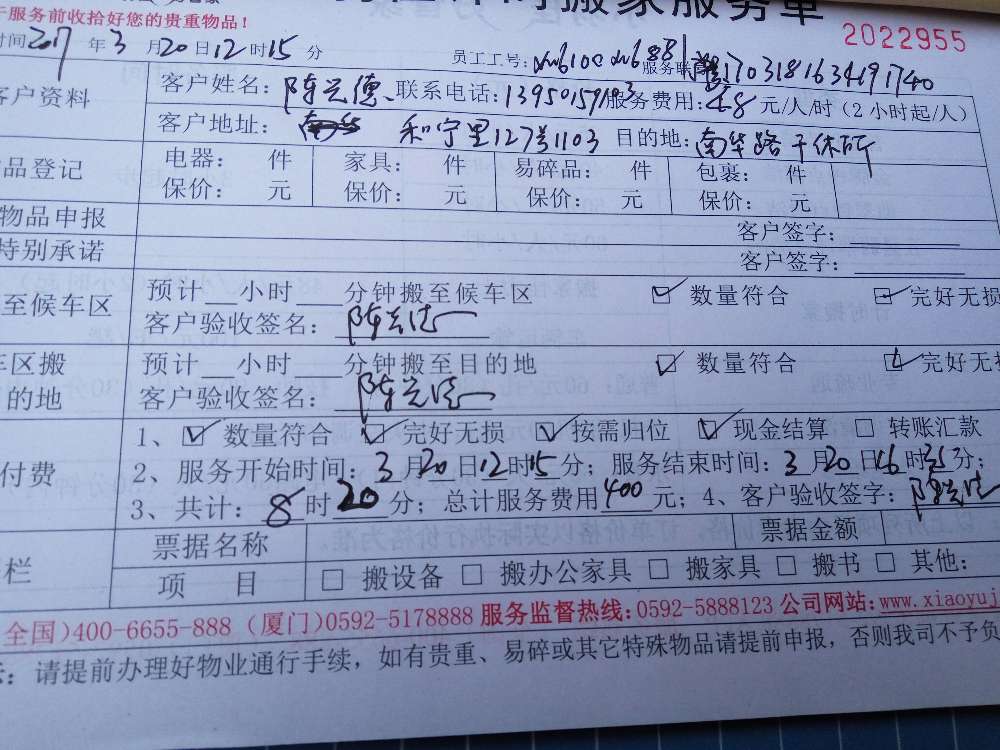 于服务前收拾好您的贵重物品！
搬家服务单
2022955
时间2017年3月20日12时15分 员工工号：
客户资料 客户姓名：陈兴德 联系电话：服务费用：48元/人/时（2小时起/人）
客户地址：和宁里127号1103 目的地：南华路干休所
品登记 电器： 件 家具： 件 易碎品： 件 包裹： 件
保价： 元 保价： 元 保价： 元 保价： 元
物品申报 客户签字：
特别承诺 客户签字：
至候车区 预计 小时 分钟搬至候车区 ☑ 数量符合 ☑ 完好无损
客户验收签名：陈兴德
车区搬 预计 小时 分钟搬至目的地 ☑ 数量符合 ☑ 完好无损
目的地 客户验收签名：陈兴德
1、☑ 数量符合 ☑ 完好无损 ☑ 按需归位 ☑ 现金结算 □ 转账汇款
付费 2、服务开始时间：3月20日12时15分；服务结束时间：3月20日16时35分；
3、共计：8时20分；总计服务费用400元；4、客户验收签字：陈兴德
票据名称 票据金额
栏 项 目 □ 搬设备 □ 搬办公家具 □ 搬家具 □ 搬书 □ 其他：
全国）400-6655-888（厦门）0592-5178888 服务监督热线：0592-5888123 公司网站：www.xiaoyuj
：请提前办理好物业通行手续，如有贵重、易碎或其它特殊物品请提前申报，否则我司不予负